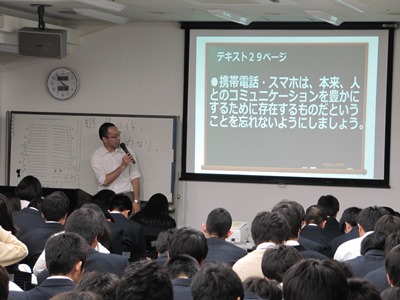 テキスト29ページ
●携帯電話・スマホは、本来、人
とのコミュニケーションを豊かに
するために存在するものだという
ことを忘れないようにしましょう。